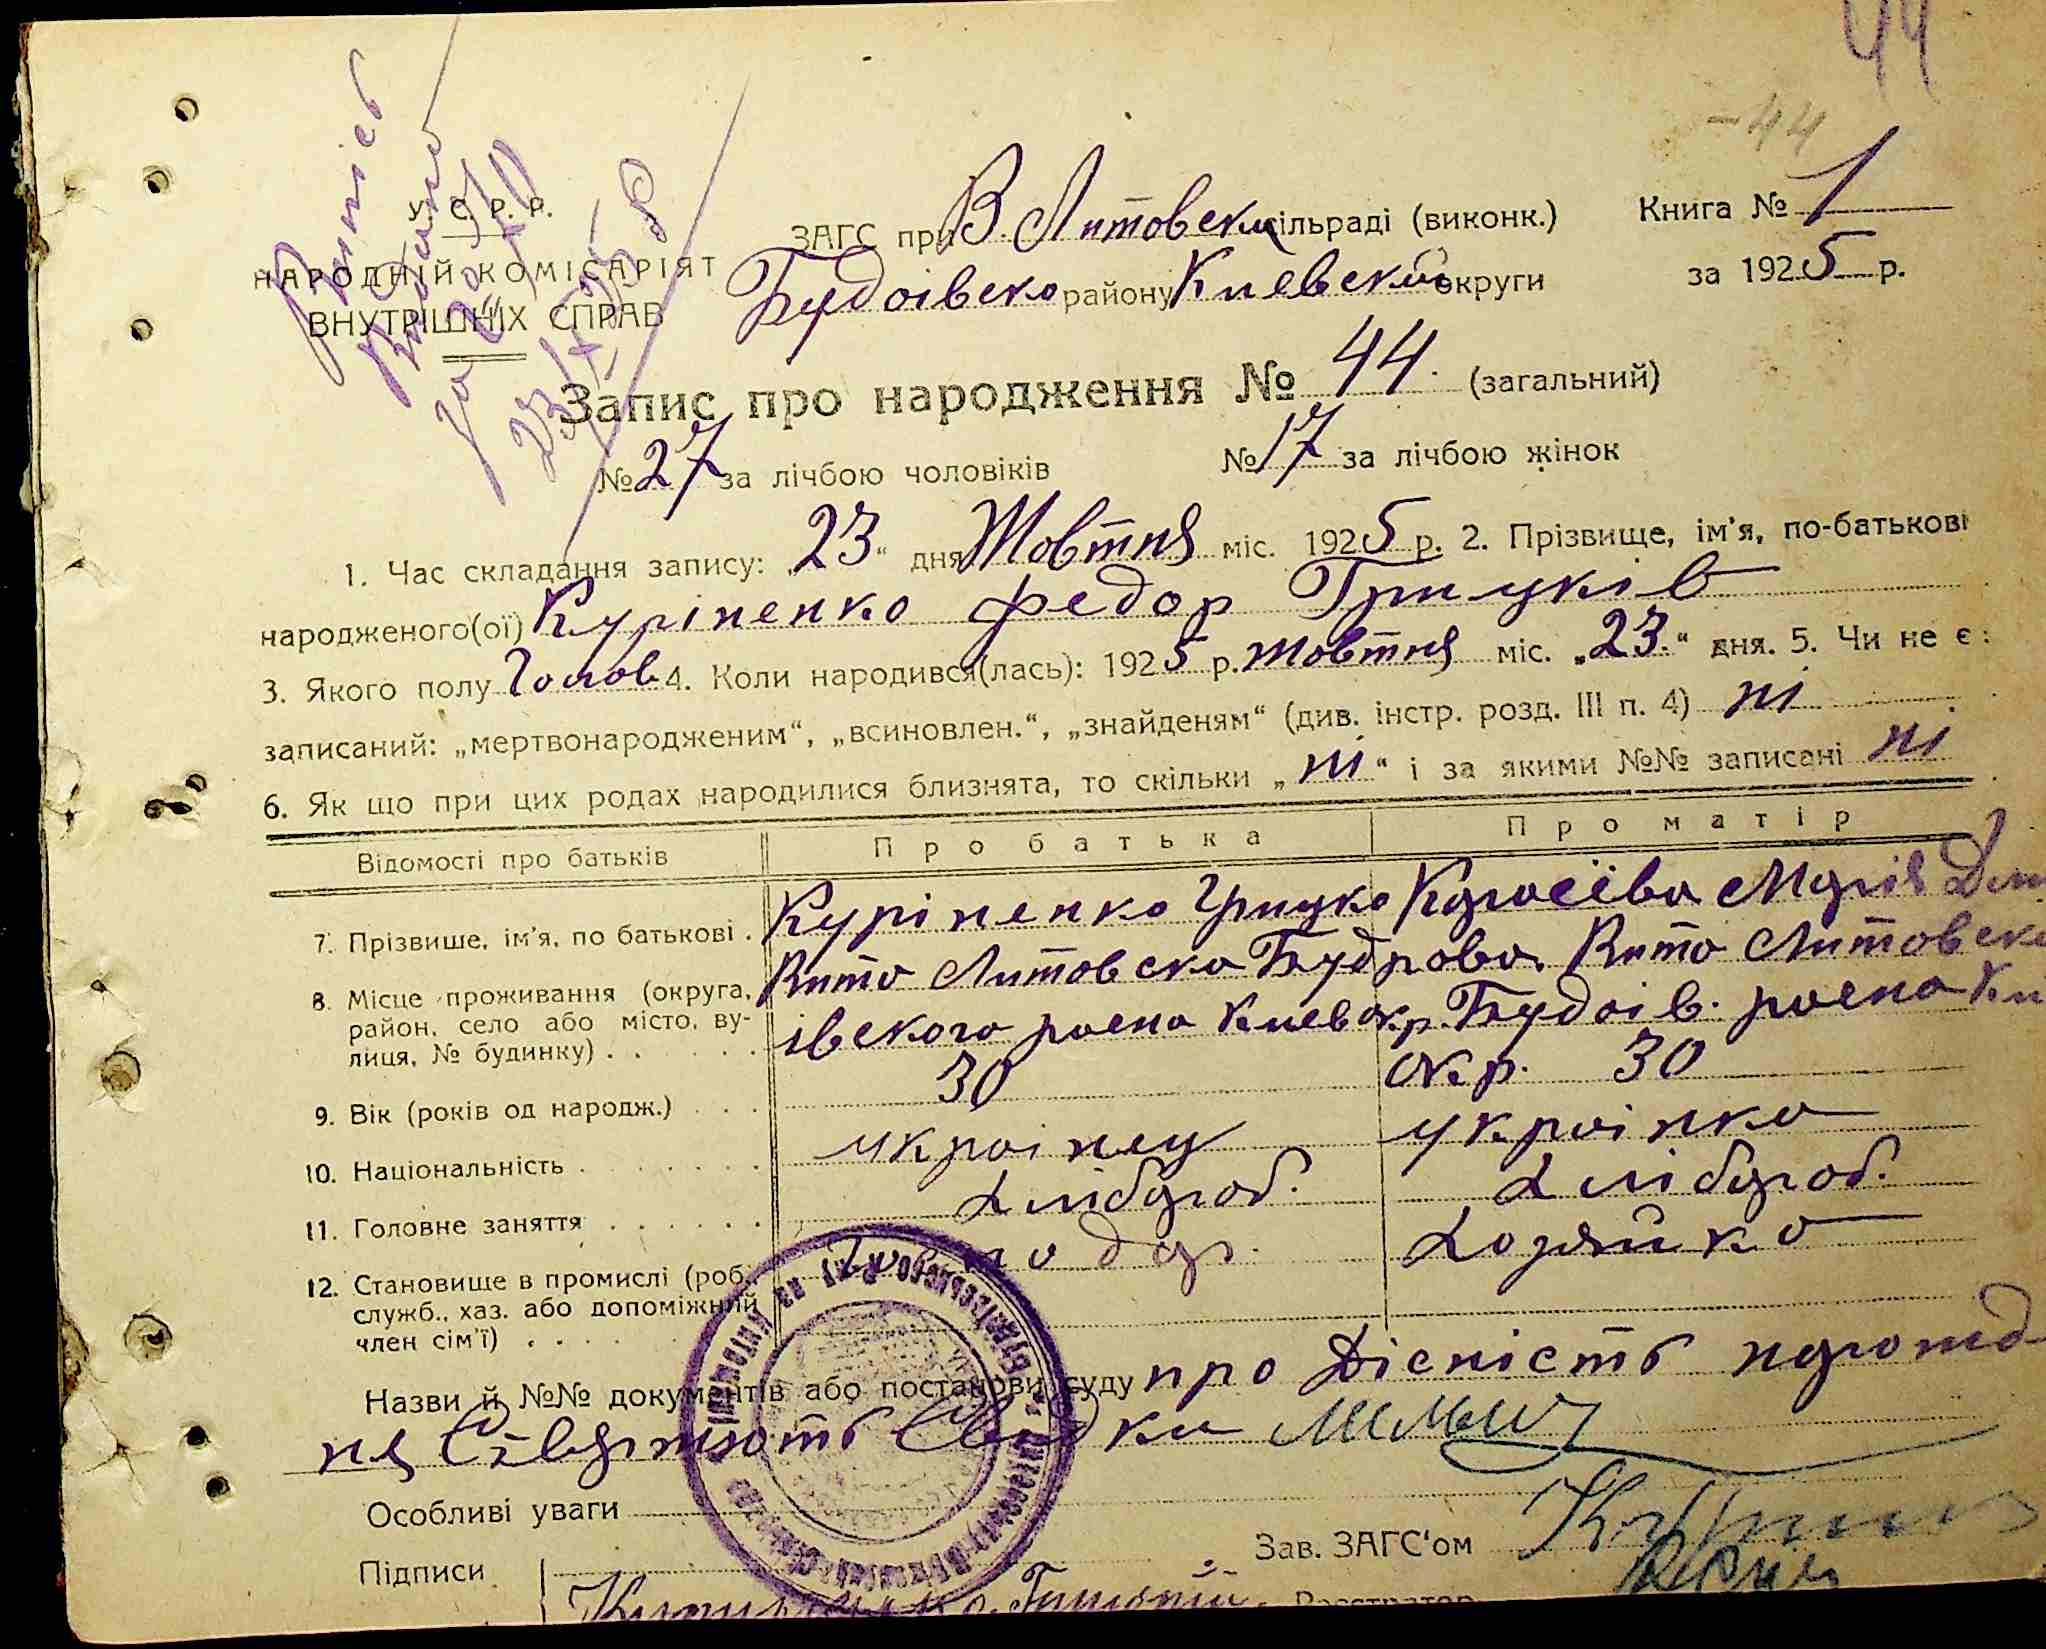 44
-44
У. С. Р. Р.
НАРОДНІЙ КОМІСАРІЯТ
ВНУТРІШНІХ СПРАВ
ЗАГС при В. Литовск сільраді (виконк.)
Книга № 1
Будоівско району Киевской округи
за 1925 р.
Запис про народження № 44. (загальний)
№ 27 за лічбою чоловіків
№ 17 за лічбою жінок
1. Час складання запису: „23“ дня Жовтня міс. 1925 р. 2. Прізвище, ім'я, по-батькові
народженого(ої) Куріненко Федор Грицків
3. Якого полу Чолов 4. Коли народився(лась): 1925 р. жовтня міс. „23.“ дня. 5. Чи не є:
записаний: „мертвонародженим“, „всиновлен.“, „знайденям“ (див. інстр. розд. III п. 4) ні
6. Як що при цих родах народилися близнята, то скільки „ні“ і за якими №№ записані ні
Відомості про батьків
Про батька
Про матір
7. Прізвише, ім'я, по батькові .
Куріненко Грицко
Марія
8. Місце проживання (округа,
район, село або місто, ву-
лиця, № будинку) . . . . . .
Вито Литовска Будо
івского раена Киев окр.
Вито Литовска
Будоів. раена Ки
окр.
9. Вік (років од народж.) . . .
30
30
10. Національність . . . . . . .
украінец
украінка
11. Головне заняття . . . . . .
Хлібароб.
Хлібароб.
12. Становище в промислі (роб.,
служб., хаз. або допоміжний
член сім'ї) . . .
Хозяйка
Назви й №№ документів або постанови суду про Дісність народ
ня
Особливі уваги
Зав. ЗАГС'ом
Підписи